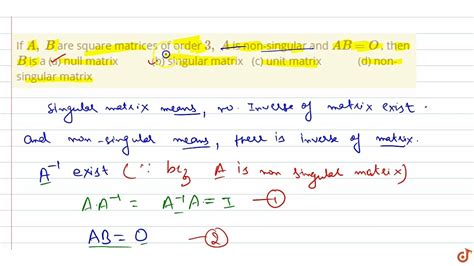 If A, B are square matrices of order 3, A is non-singular and AB = O, then
B is a (a) null matrix (b) singular matrix (c) unit matrix (d) non-
singular matrix
Singular matrix means, no Inverse of matrix exist.
And non-singular means, there is inverse of matrix.
A⁻¹ exist (∵ bcz A is non singular matrix)
A.A⁻¹ = A⁻¹A = I —①
AB = O —②